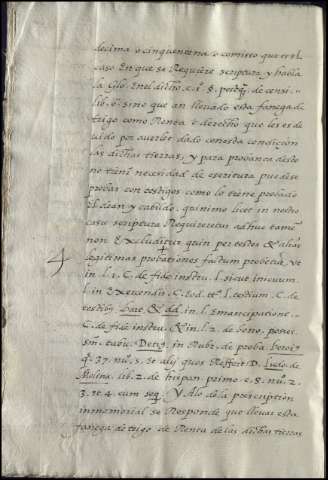 decima o cinquentena o comisso que es el
caso En que se Requiere scriptura y habla
la Glo. En el dicho c. 1. §. de censi-
lib. o. sino que an llevado esta fanega de
trigo como Renta e derecho que les es de
uido por auerles dado con esta condición
las dichas tierras, y para prouança desto
no tiene necesidad de escritura puedese
probar con testigos como lo tiene probado
el dean y cabildo. quinimo licet in nostro
casu scriptura Requireretur adhuc tamen
non Excluditur quin per testes & alias
4 legitimas probationes factum probetur ut
in l. 1. C. de fide instru. l. sicut iniquum
l. in Exercendis. C. eod. tt. l. testium. C. de
testibus Bart. & dd. in l. Emancipatione.
C. de fide instru. & in l. 2. de bono. posses.
sm. tabu. Decius in Rubr. de proba.
q. 37. nu. 5. et alij quos Reffert D. Ludo. de
Molina. lib. 2. de hispan. primo. c. 8. nu. 2.
3. et 4. cum seq. Y A lo de la prescription
inmemorial se Responde que lleuar esta
fanega de trigo de Renta de las dichas tierras